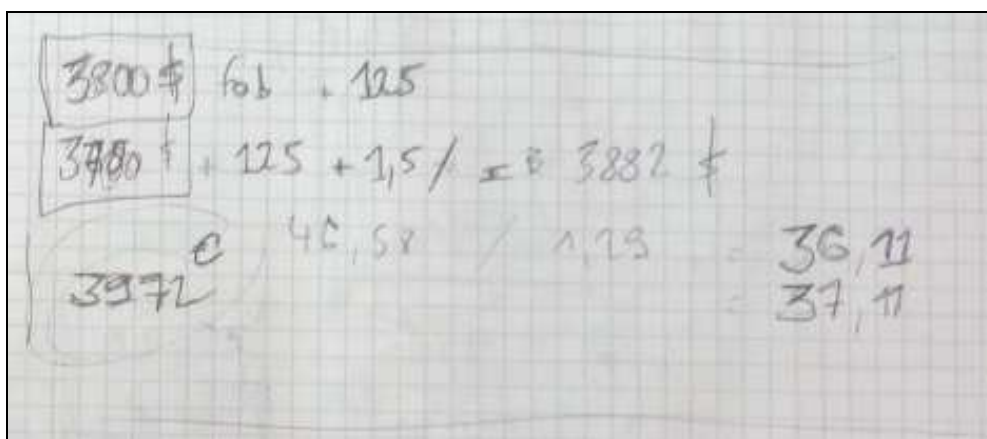 3800 $ fob + 125
$ + 125 + 1,5 / = 3882 $
3972 € 46,58 / 1,29 = 36,11
= 37,11